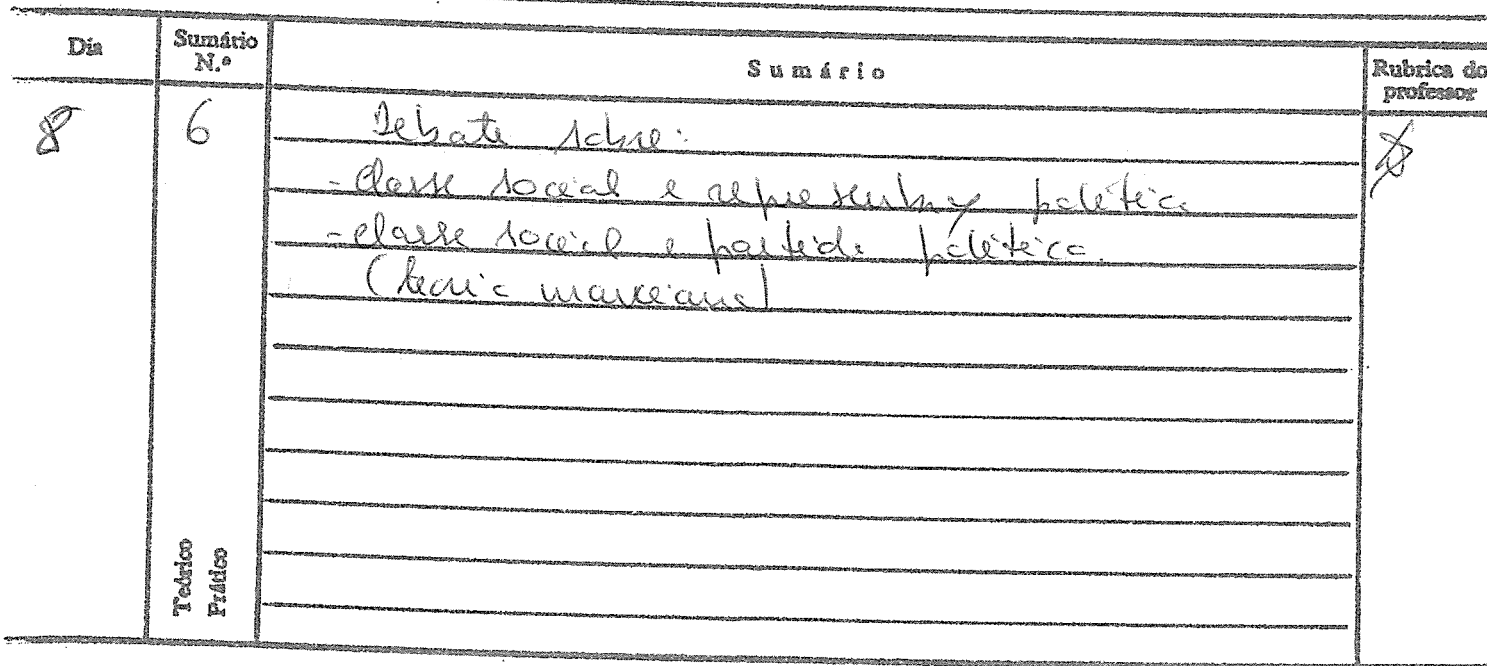 Dia
Sumário N.º
Sumário
Rubrica do professor
8
6
Debate sobre:
- classe social e representação política
- classe social e partido político.
(teoria marxiana)
Teórico
Prático